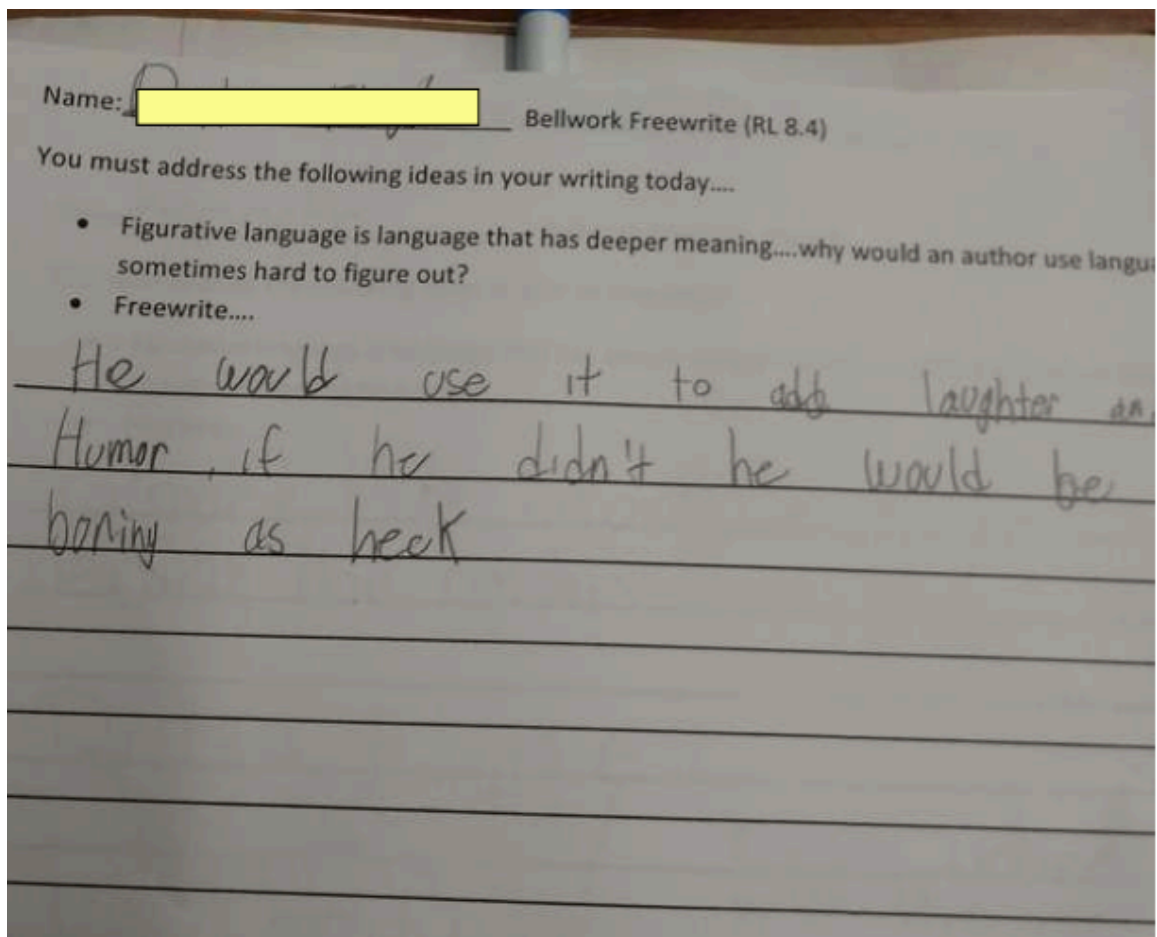 Name: Bellwork Freewrite (RL 8.4)
You must address the following ideas in your writing today....
• Figurative language is language that has deeper meaning....why would an author use langua
sometimes hard to figure out?
• Freewrite....
He would use it to add laughter an
Humor, if he didn't he would be
boring as heck